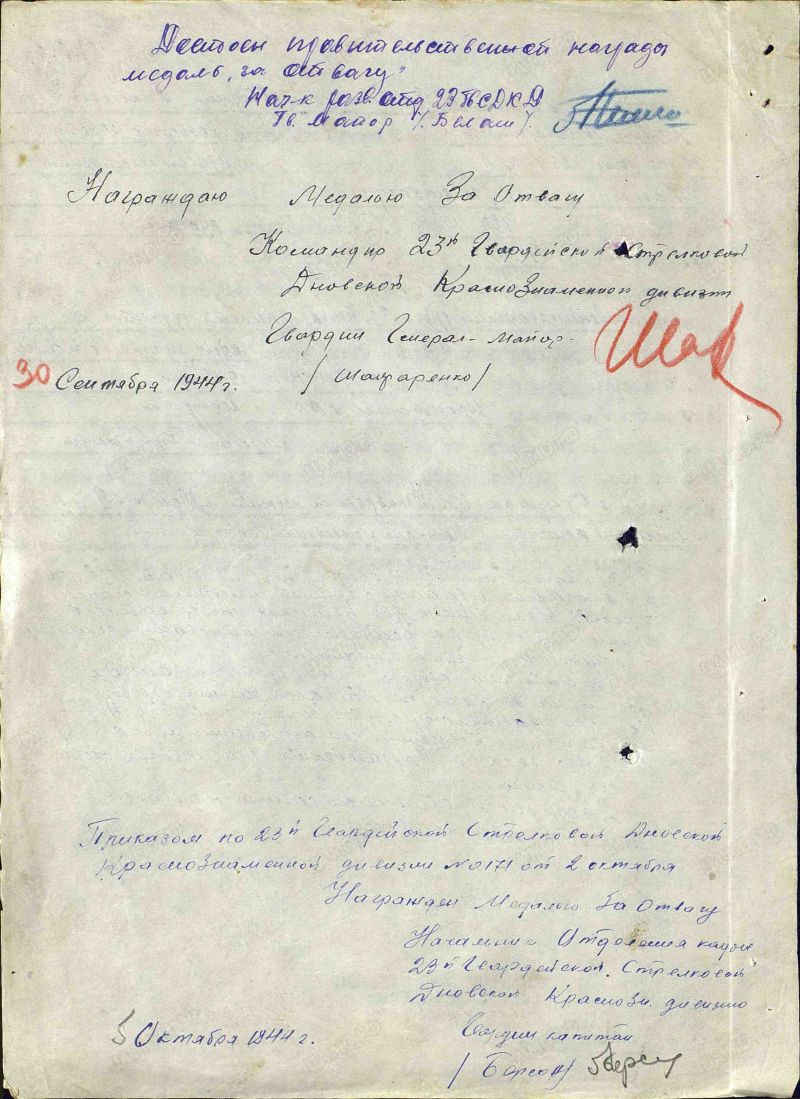 Достоен правительственной награды
медаль „за отвагу"
Нач-к разв. отд 23 Гв СДКД
Гв. майор /. Белаш /.
Награждаю Медалью За Отвагу
Командир 23й Гвардейской Стрелковой
Дновской Краснознаменной дивизии
Гвардии Генерал-майор.
/ Шафаренко /
Шаф
30 Сентября 1944г.
Приказом по 23й Гвардейской Стрелковой Дновской
Краснознаменной дивизии No 171 от 2 октября
Награжден Медалью За Отвагу
Начальник Отделения кадров
23й Гвардейской. Стрелковой
Дновской Краснозн. дивизии
Гвардии капитан
5 Октября 1944г.